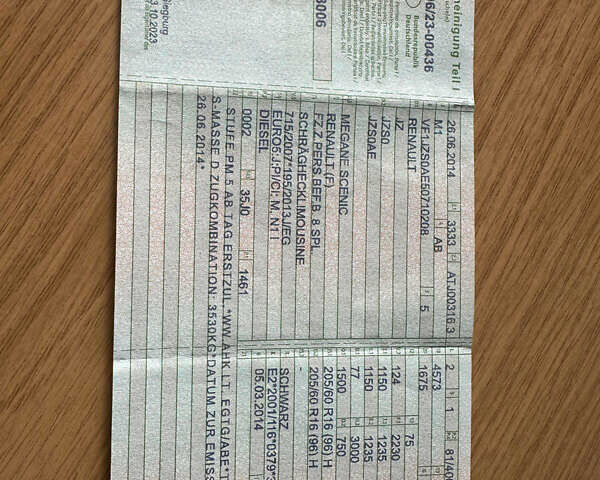 einigung Teil I
6/23-00436
Bundesrepublik
Deutschland
3006
Siegburg
3.10.2023
26.06.2014 3333 ATJ00316 3
M1 AB
VF1JZS0AE50710208 5
RENAULT
JZ
JZS0
JZS0AE
MEGANE SCENIC
RENAULT (F)
FZ.Z.PERS.BEF.B. 8 SPL.
SCHRÄGHECKLIMOUSINE
715/2007*195/2013J/EG
EURO5;J;PI/CI; M, N1 I
DIESEL
0002 35J0 1461
STUFE PM 5 AB TAG ERSTZUL.*WW.AHK LT. EGTG/ABE*
S-MASSE D.ZUGKOMBINATION: 3530KG*DATUM ZUR EMISS
26.06.2014*
2 1 81/400
4573
1675
124 75
1150 2230
1150 1235
77 1235
1500 3000
750
205/60 R16 (96) H
205/60 R16 (96) H
-
SCHWARZ
E2*2001/116*0379*3
05.03.2014